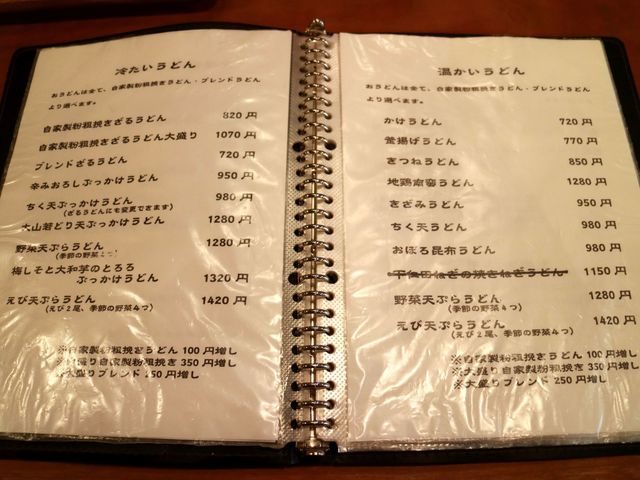 冷たいうどん
おうどんは全て、自家製粉粗挽きうどん・ブレンドうどん
より選べます。
自家製粉粗挽きざるうどん 820 円
自家製粉粗挽きざるうどん大盛り 1070 円
ブレンドざるうどん 720 円
辛みおろしぶっかけうどん 950 円
ちく天ぶっかけうどん 980 円
(ざるうどんにも変更できます)
大山若どり天ぶっかけうどん 1280 円
野菜天ぷらうどん 1280 円
(季節の野菜
梅しそと大和芋のとろろ
ぶっかけうどん 1320 円
えび天ぷらうどん 1420 円
(えび2尾、季節の野菜4つ)
※自家製粉粗挽きうどん 100 円増し
※大盛り自家製粉粗挽き 350 円増し
※大盛りブレンド 250 円増し
温かいうどん
おうどんは全て、自家製粉粗挽きうどん・ブレンドうどん
より選べます。
かけうどん 720 円
釜揚げうどん 770 円
きつねうどん 850 円
地鶏南蛮うどん 1280 円
きざみうどん 950 円
ちく天うどん 980 円
おぼろ昆布うどん 980 円
下仁田ねぎの焼きねぎうどん 1150 円
野菜天ぷらうどん 1280 円
(季節の野菜4つ)
えび天ぷらうどん 1420 円
(えび2尾、季節の野菜4つ)
※自家製粉粗挽きうどん 100 円増し
※大盛り自家製粉粗挽き 350 円増し
※大盛りブレンド 250 円増し